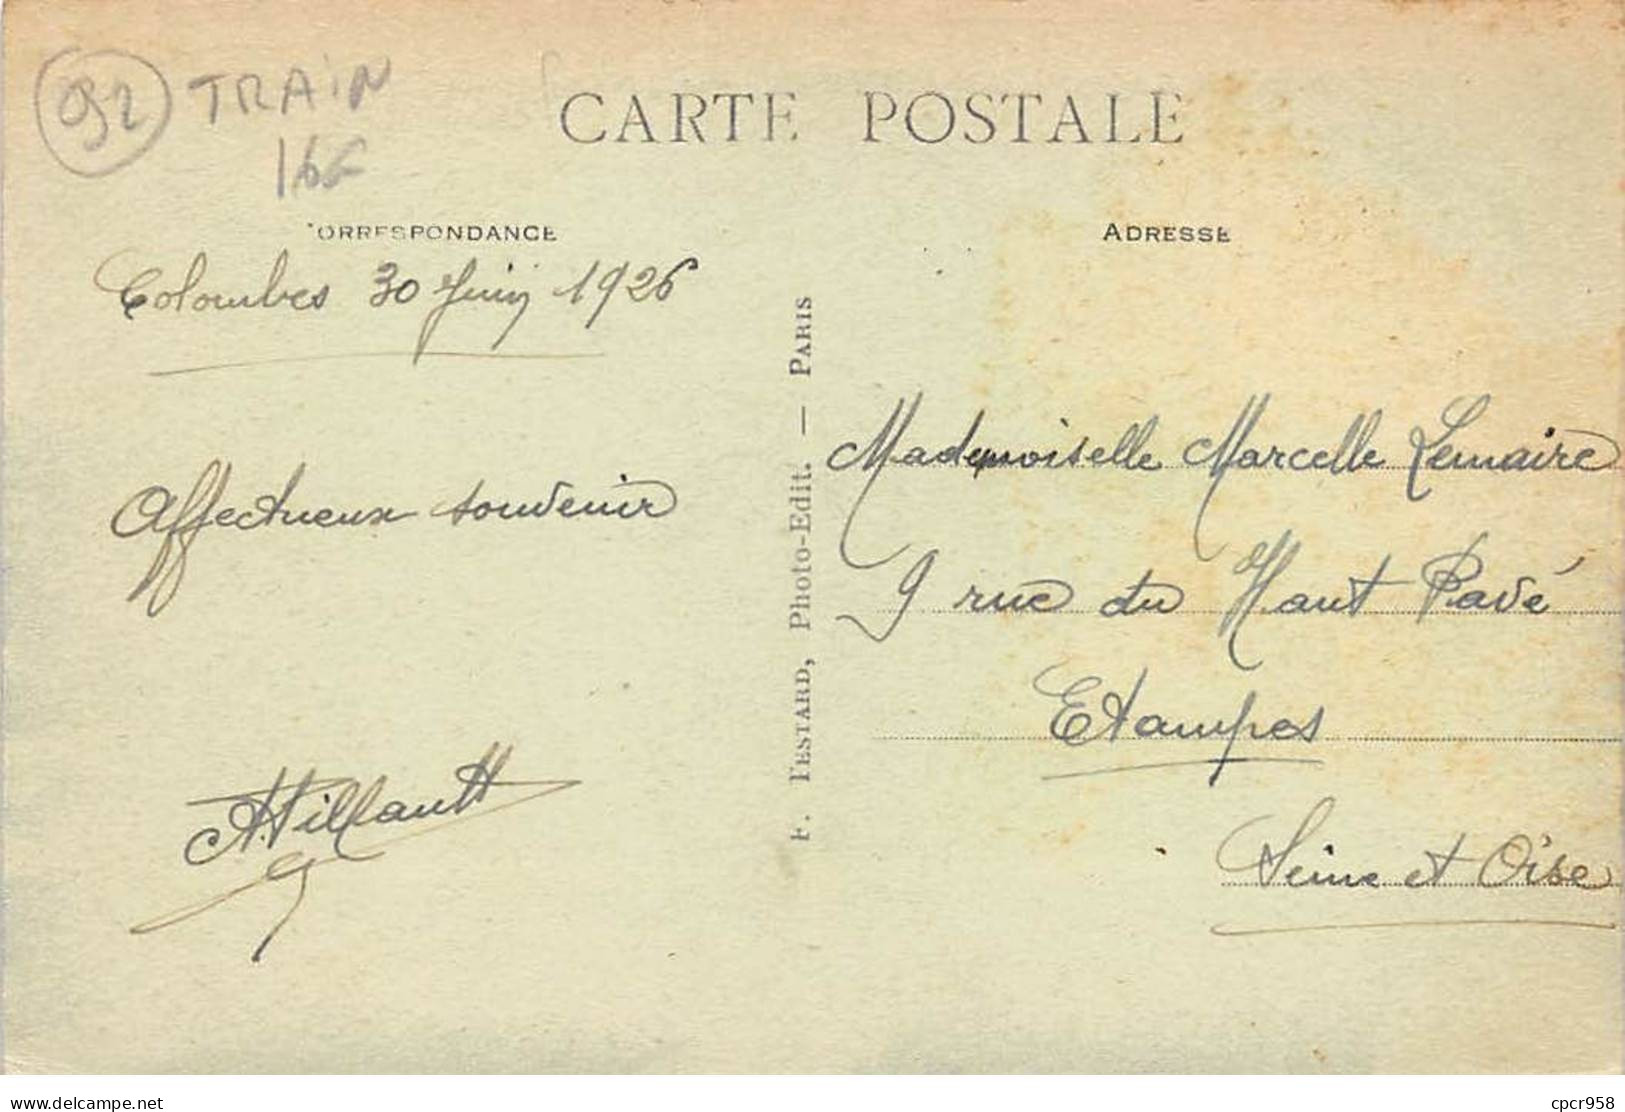 92 TRAIN
16€
CARTE POSTALE
CORRESPONDANCE
ADRESSE
Colombes 30 Juin 1926
Affectueux souvenir
F. TESTARD, Photo-Edit. — PARIS
Mademoiselle Marcelle Lemaire
9 rue du Haut Pavé
Etampes
Seine et Oise
delcampe.net
cpcr958